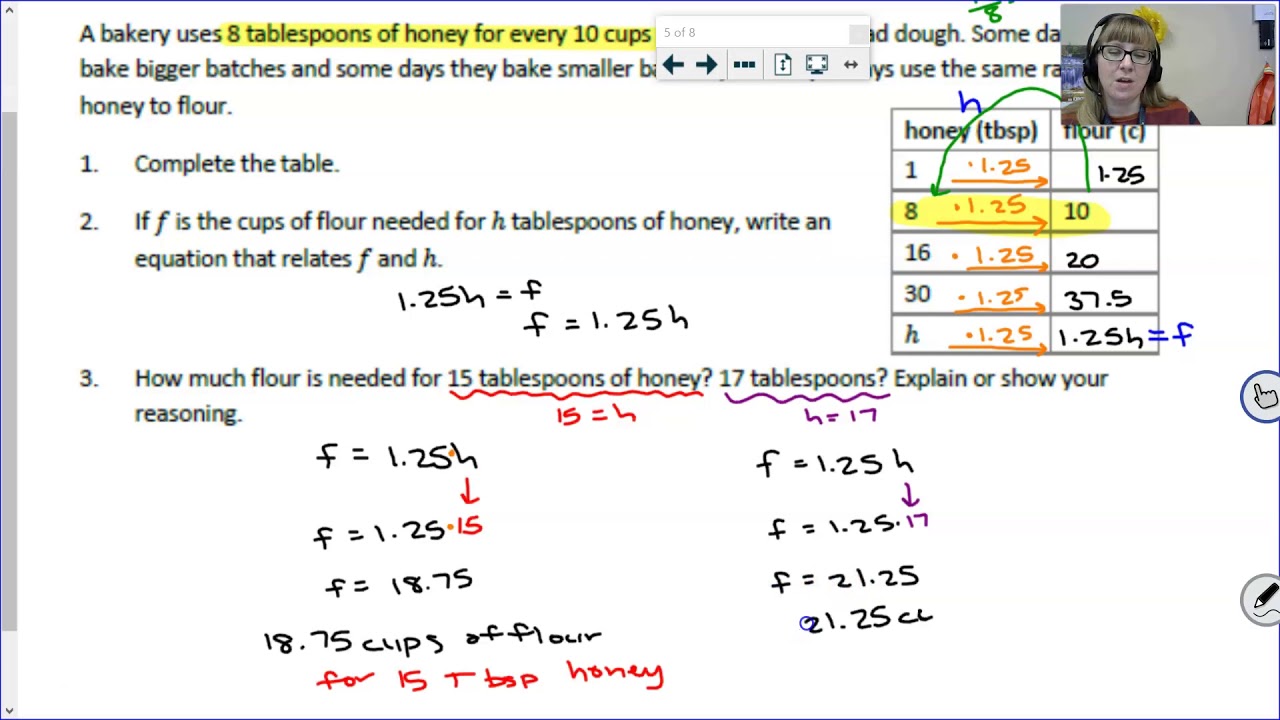 8
A bakery uses 8 tablespoons of honey for every 10 cups
5 of 8
ad dough. Some da
bake bigger batches and some days they bake smaller ba
ys use the same ra
honey to flour.
h
honey (tbsp) flour (c)
1 · 1.25 1.25
8 · 1.25 10
16 · 1.25 20
30 · 1.25 37.5
h · 1.25 1.25h = f
1. Complete the table.
2. If f is the cups of flour needed for h tablespoons of honey, write an
equation that relates f and h.
1.25h = f
f = 1.25h
3. How much flour is needed for 15 tablespoons of honey? 17 tablespoons? Explain or show your
reasoning.
15 = h
h = 17
f = 1.25·h
f = 1.25·15
f = 18.75
18.75 cups of flour
for 15 Tbsp honey
f = 1.25h
f = 1.25·17
f = 21.25
21.25 cu